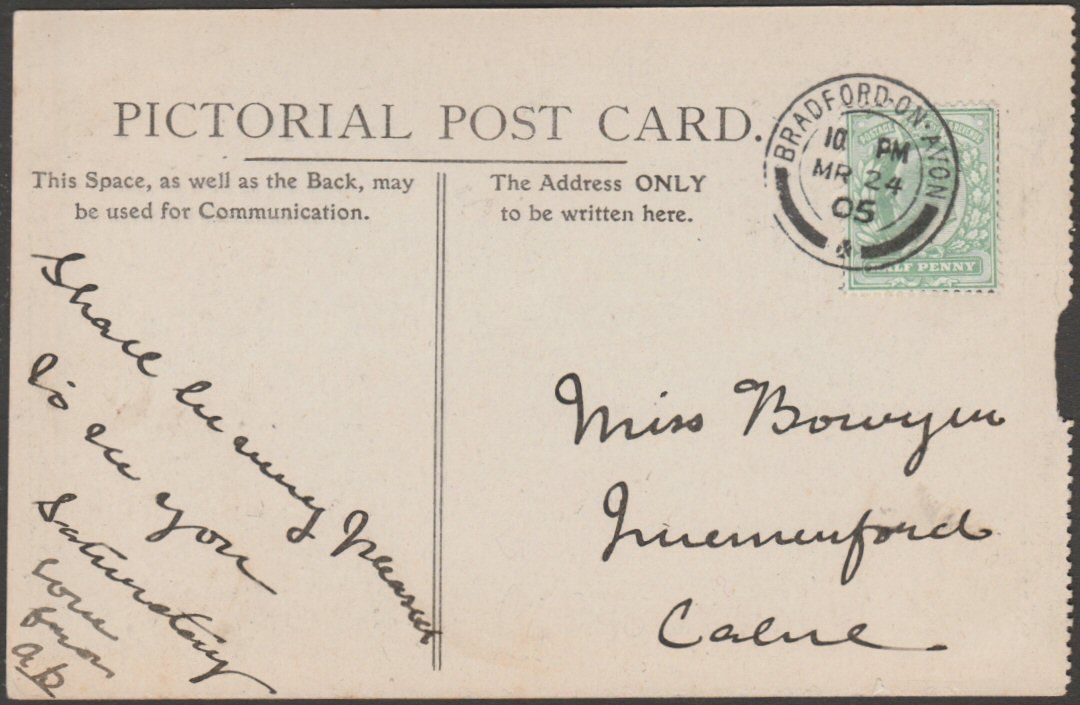 PICTORIAL POST CARD.
This Space, as well as the Back, may
be used for Communication.
The Address ONLY
to be written here.
BRADFORD-ON-AVON
10 PM
MR 24
05
POSTAGE REVENUE
HALF PENNY
Shall be very pleased
to see you
Saturday
love
from
Miss Bowyer
Calne